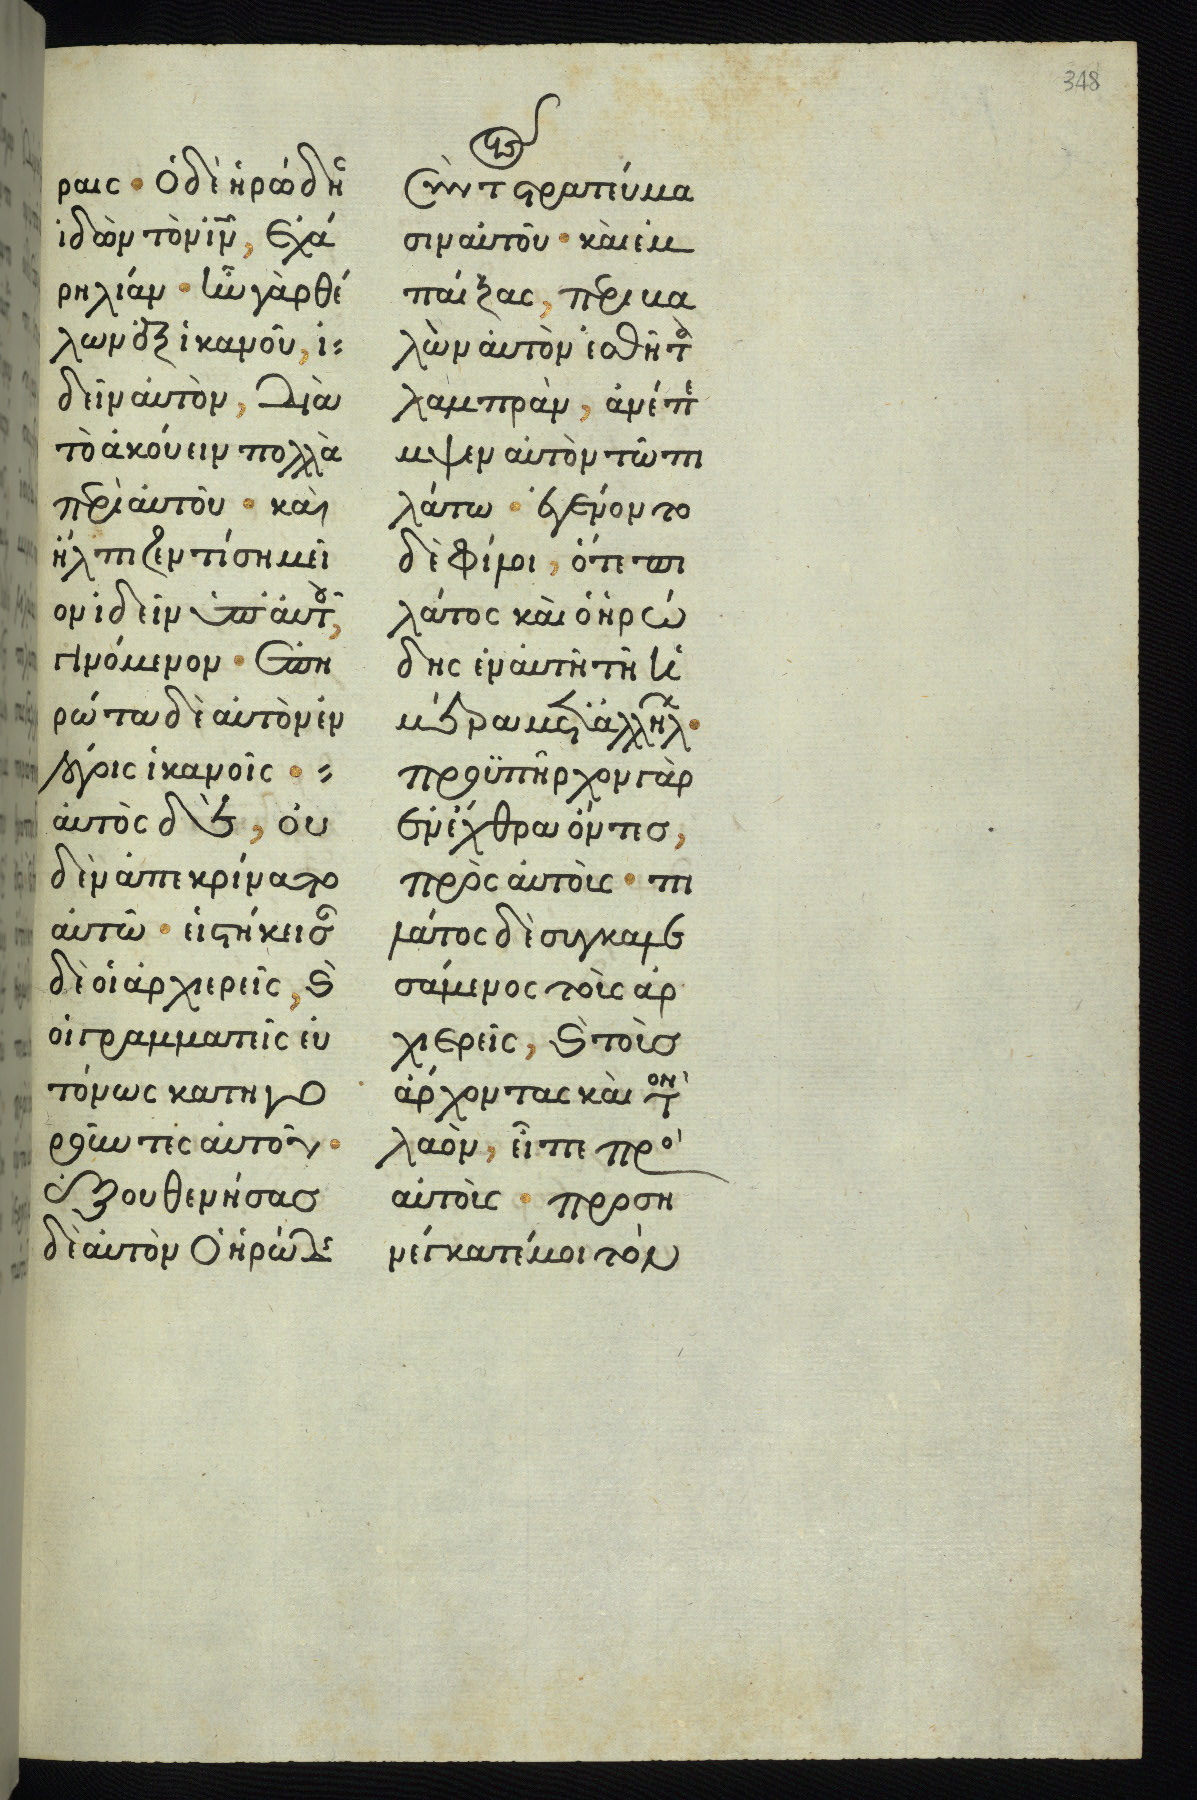 348
ραις · Ὁ δὲ ἡρώδης
ἰδὼν τὸν ἰν, ἐχά
ρη λίαν · ἦν γὰρ θέ
λων ἐξ ἱκανοῦ, ἰ=
δεῖν αὐτὸν, διὰ
τὸ ἀκούειν πολλὰ
περὶ αὐτοῦ · καὶ
ἤλπιζεν τί σημεῖ
ον ἰδεῖν ὑπ' αὐτοῦ,
γινόμενον · Ἐπη
ρώτα δὲ αὐτὸν ἐν
λόγοις ἱκανοῖς · =
αὐτὸς δὲ, οὐ
δὲν ἀπεκρίνατο
αὐτῶ · εἱστήκεισαν
δὲ οἱ ἀρχιερεῖς, καὶ
οἱ γραμματεῖς εὐ
τόνως κατηγο
ροῦντες αὐτοῦ ·
ἐξουθενήσας
δὲ αὐτὸν ὁ ἡρώδης
σὺν τοῖς στρατεύμα
σιν αὐτοῦ · καὶ ἐμ
παίξας, περιβα
λὼν αὐτὸν ἐσθῆτα
λαμπρὰν, ἀνέπε
μψεν αὐτὸν τῶ πι
λάτω · ἐγένοντο
δὲ φίλοι, ὅτε πι
λάτος καὶ ὁ ἡρώ
δης ἐν αὐτῆ τῆ ἡ
μέρα μετ' ἀλλήλων ·
προϋπῆρχον γὰρ
ἐν ἔχθρα ὄντες,
πρὸς αὐτοῖς · πι
λάτος δὲ συγκαλε
σάμενος τοὶς ἀρ
χιερεῖς, καὶ τοὶς
ἄρχοντας καὶ τὸν
λαὸν, εἶπε πρὸ
αὐτοὶς · προση
νέγκατέ μοι τὸν